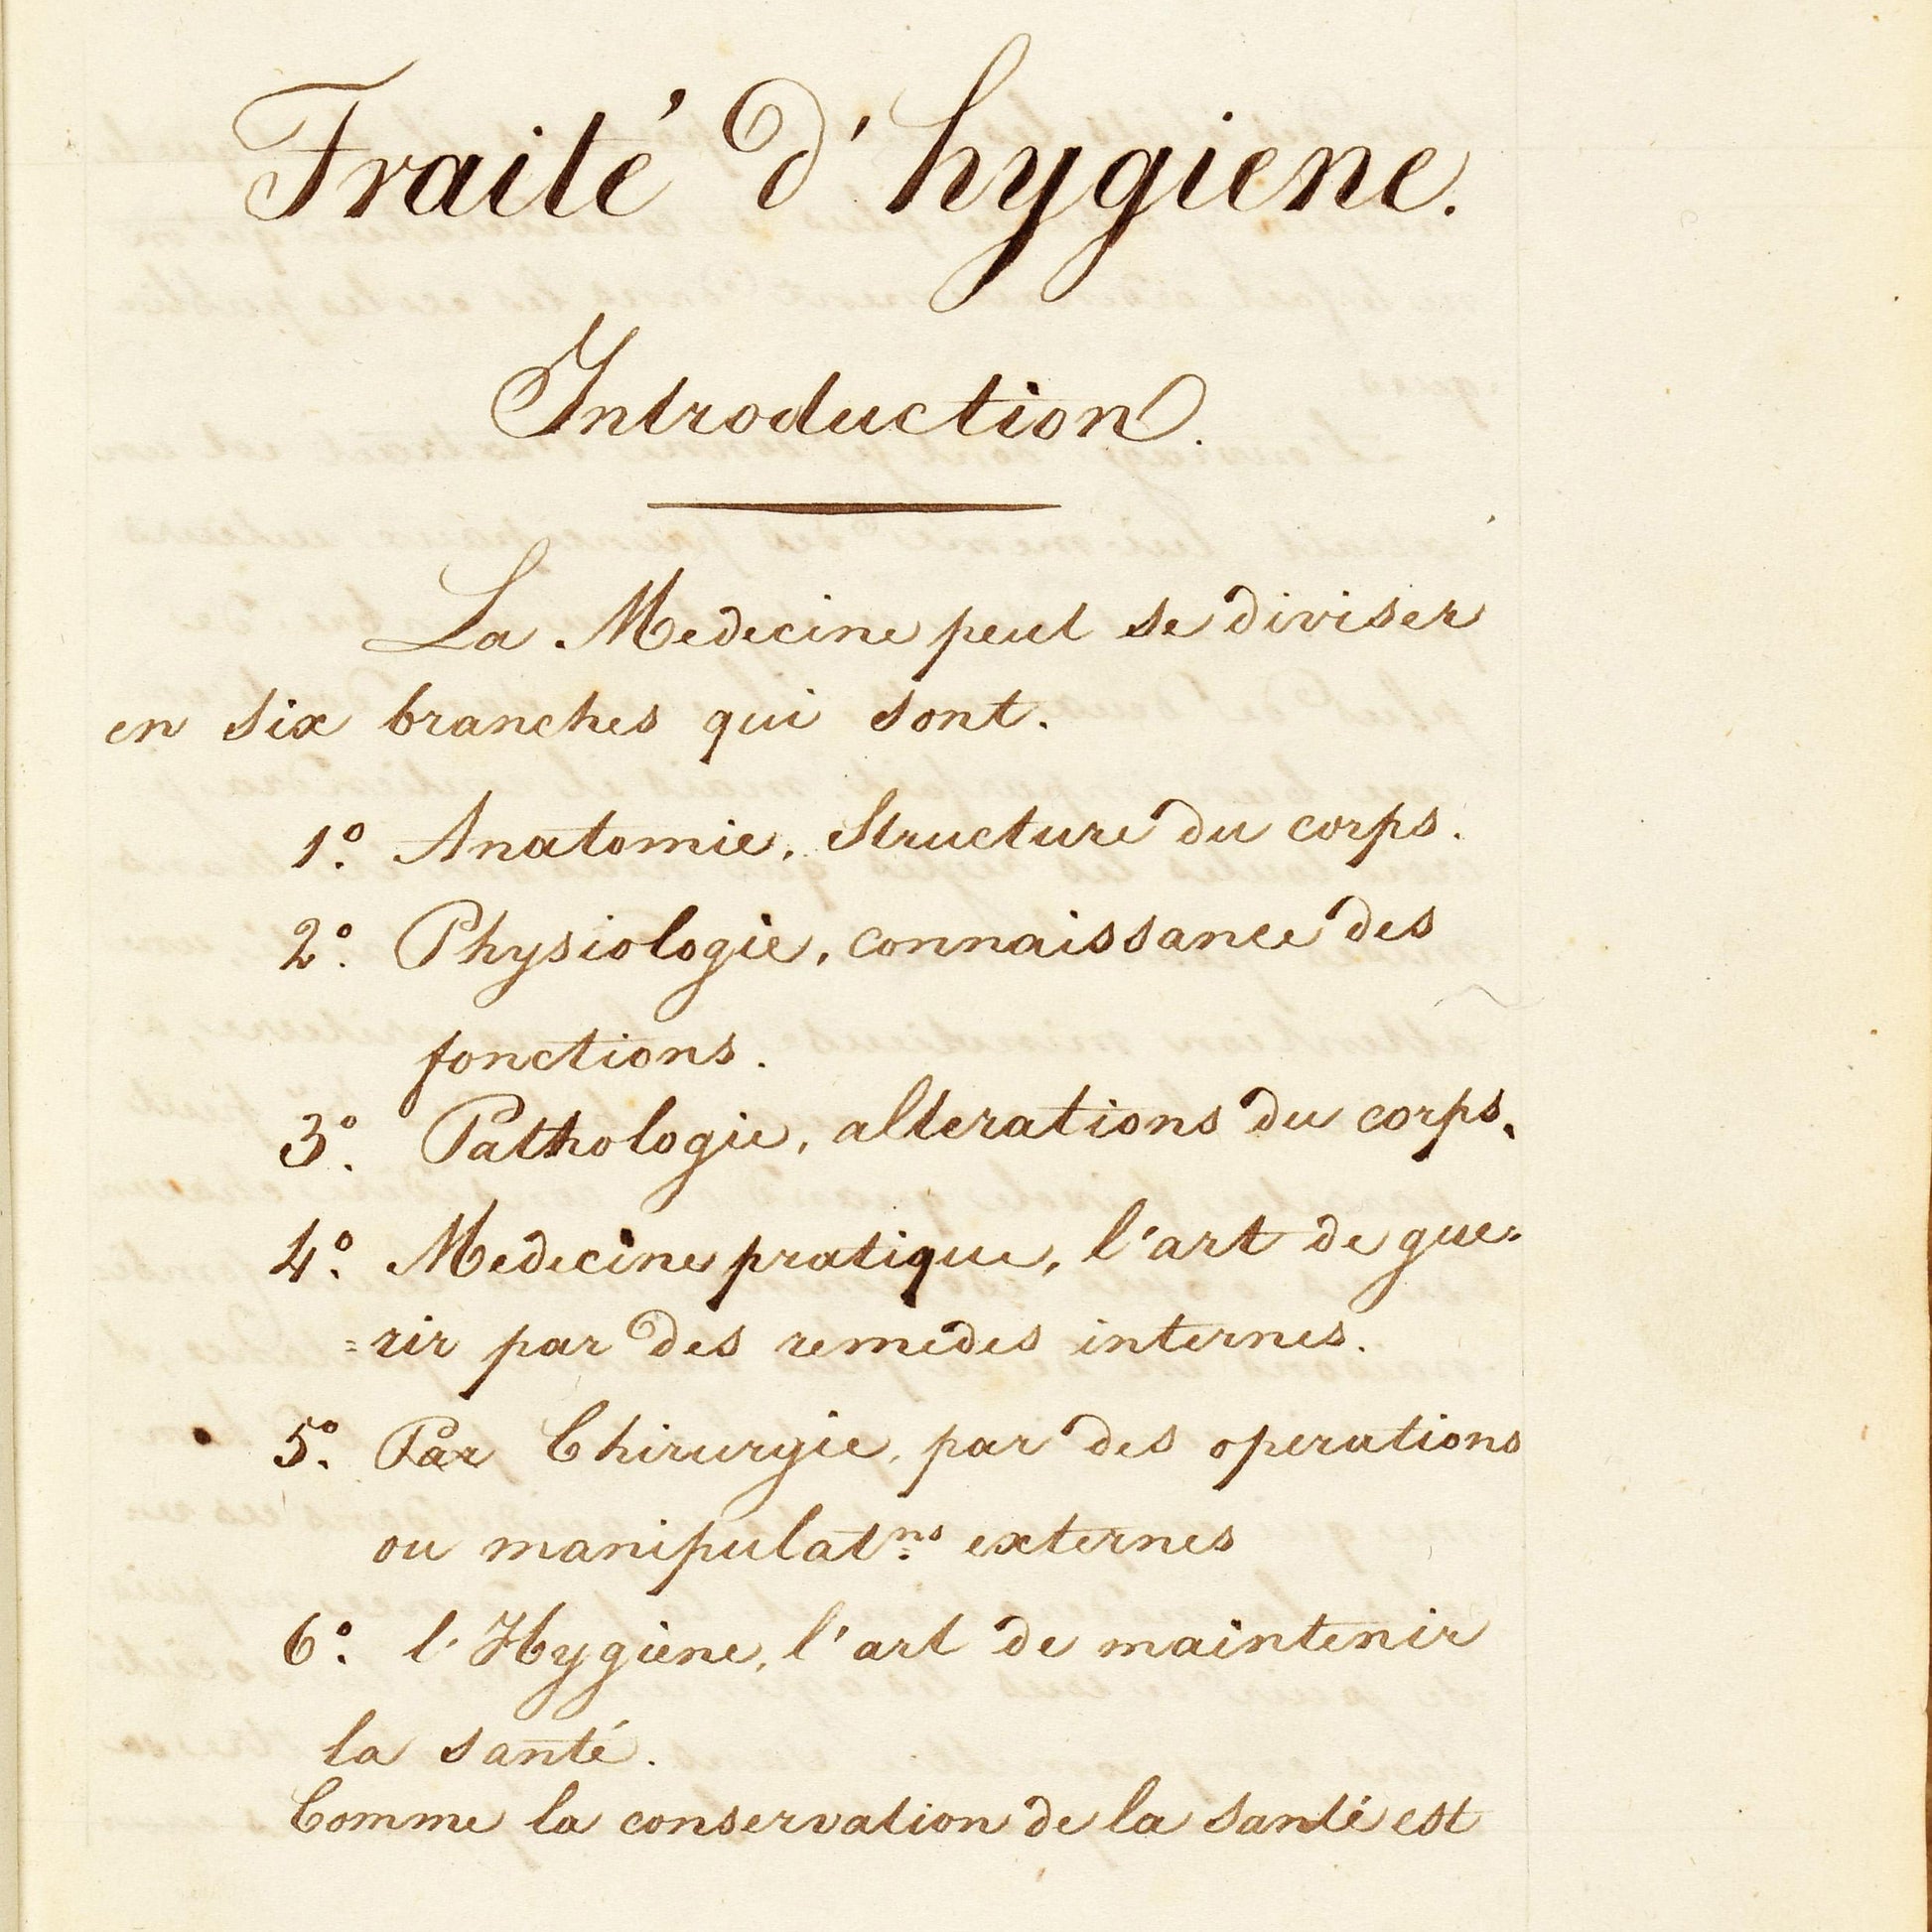 Traité d'hygiene.
Introduction.
La Medecine peut se diviser
en six branches qui sont.
1º. Anatomie, Structure du corps.
2º. Physiologie, connaissance des
fonctions.
3º. Pathologie, alterations du corps.
4º. Medecine pratique, l'art de gue-
=rir par des remedes internes.
5º. Par Chirurgie, par des operations
ou manipulat.ns externes
6º. l'Hygiene, l'art de maintenir
la santé.
Comme la conservation de la santé est